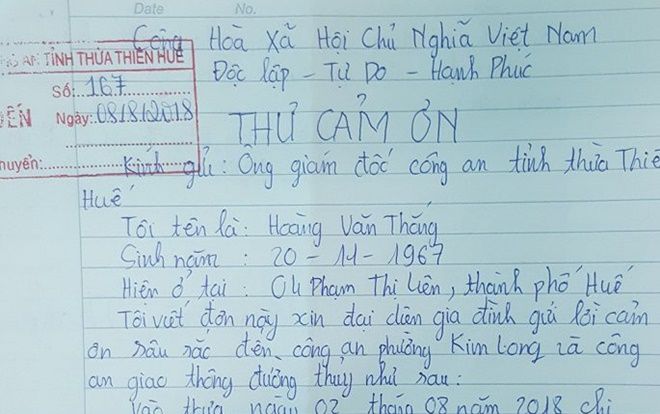 Date No.
Cộng Hoà Xã Hội Chủ Nghĩa Việt Nam
Độc lập - Tự Do - Hạnh Phúc
AN TỈNH THỪA THIÊN HUẾ
Số: 167
ĐẾN Ngày: 08/8/2018
THƯ CẢM ƠN
huyển:
Kính gửi: Ông giám đốc công an tỉnh thừa Thiê
Huế
Tôi tên là: Hoàng Văn Thắng
Sinh năm: 20 - 11 - 1967
Hiện ở tại: 04 Phạm Thị Liên, thành phố Huế
Tôi viết đơn này xin đại diện gia đình gửi lời cảm
ơn sâu sắc đến công an phường Kim Long và công
an giao thông đường thuỷ như sau:
Vào trưa ngày 02 tháng 08 năm 2018 chị